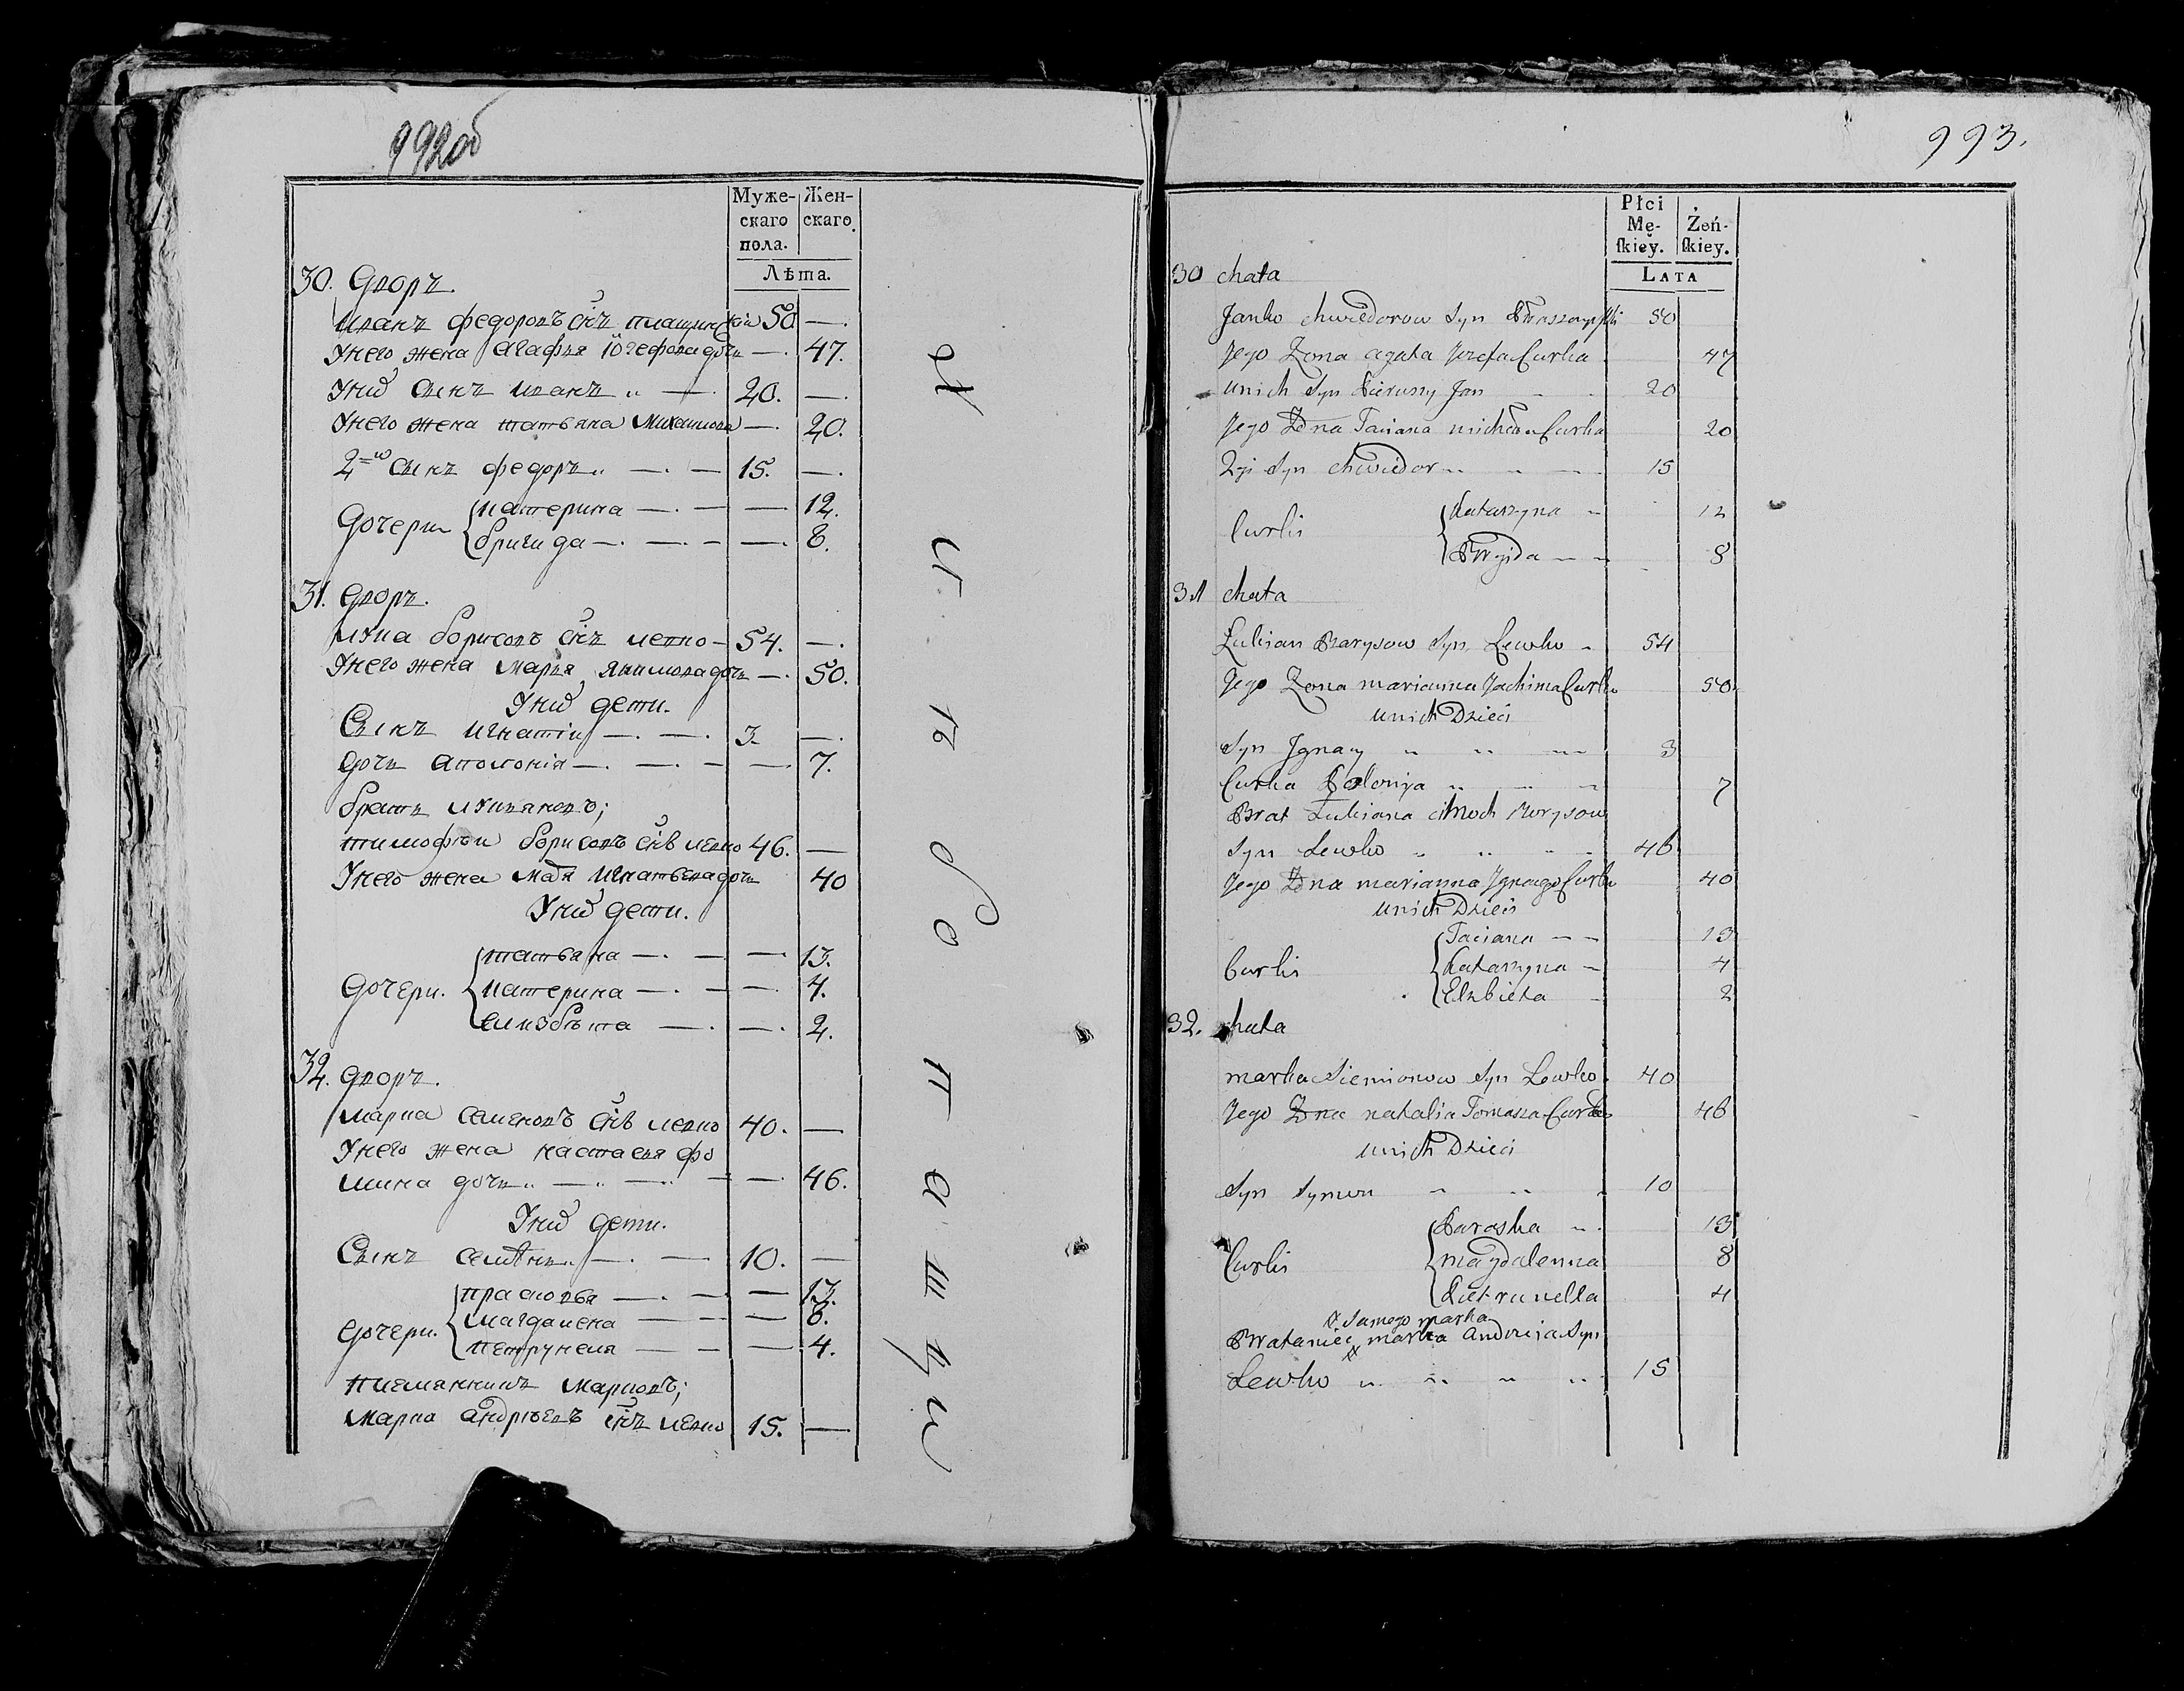 992об
Муже-скаго пола. Жен-скаго.
Лѣта.
30. Дворъ.
Иванъ федоровъ снъ 50 —.
Унего жена Агафья дочь —. 47.
Унихъ Сынъ Иванъ „ — 20. —.
Унего жена татьяна Михаилова —. 20.
2-ю Сынъ федоръ „ —. — 15. —.
Дочери катерина —. — — 12.
бригида —. —. — —. 8.
31. Дворъ.
лука борисовъ снъ левко — 54. —.
Унего жена Марья дочь —. 50.
Унихъ дети.
Сынъ Игнатій —. —. 3. —.
Дочь Аполонія —. —. — —. 7.
братъ лукъановъ;
тимофѣи борисовъ снъ левко 46. —
Унего жена Игнатьева дочь 40
Унихъ дети.
татьяна —. — — 13.
Дочери. катерина —. — —. 4.
елизбѣта —. —. 2.
32. Дворъ.
Марка семеновъ снъ левко 40. —
Унего жена настасья фо
мина дочь „ — „ — „ — — 46.
Унихъ дети.
Сынъ семѣнъ „ —. — 10. —
прасковья —. — — 13.
Дочери. магдалена — — — 8.
петрунеля — — — 4.
племянникъ марковъ;
Марка андрѣевъ снъ левко 15. —
И и ь б о п а ш ц и
993.
Płci Mę-ſkiey. Żeń-ſkiey.
LATA
30 chata
Janko chwiedorow Syn 50
Jego Zona agata Jozefa Curka 47
unich Syn Pierwszy Jan 20
Jego Zona Taciana michała Curka 20
2gi Syn chwiedor „ „ — 15
Curki Katarzyna — 12
Brygida — — 8
31 chata
Łukian Barysow Syn Lewko — 54
Jego Zona marianna Jachima Curka 50
unich Dzieci
Syn Jgnacy „ „ — 3
Curka Polonija „ — — 7
Brat Łukiana cimoch Borysow
Syn Lewko „ „ — 46
Jego Zona marianna Jgnacego Curka 40
unich Dzieci
Taciana — — 13
Curki Katarzyna — 4
Elzbieta — 2
32. chata
marka Siemionow Syn Lewko. 40
Jego Zona natalia Tomasza Curka 46
unich Dzieci
Syn Symon „ „ 10
Paraska — 13
Curki magdalenna 8
Pietrunella 4
x Samego marka
Brataniec x marka Andreja Syn
Lewko „ „ „ „ 15